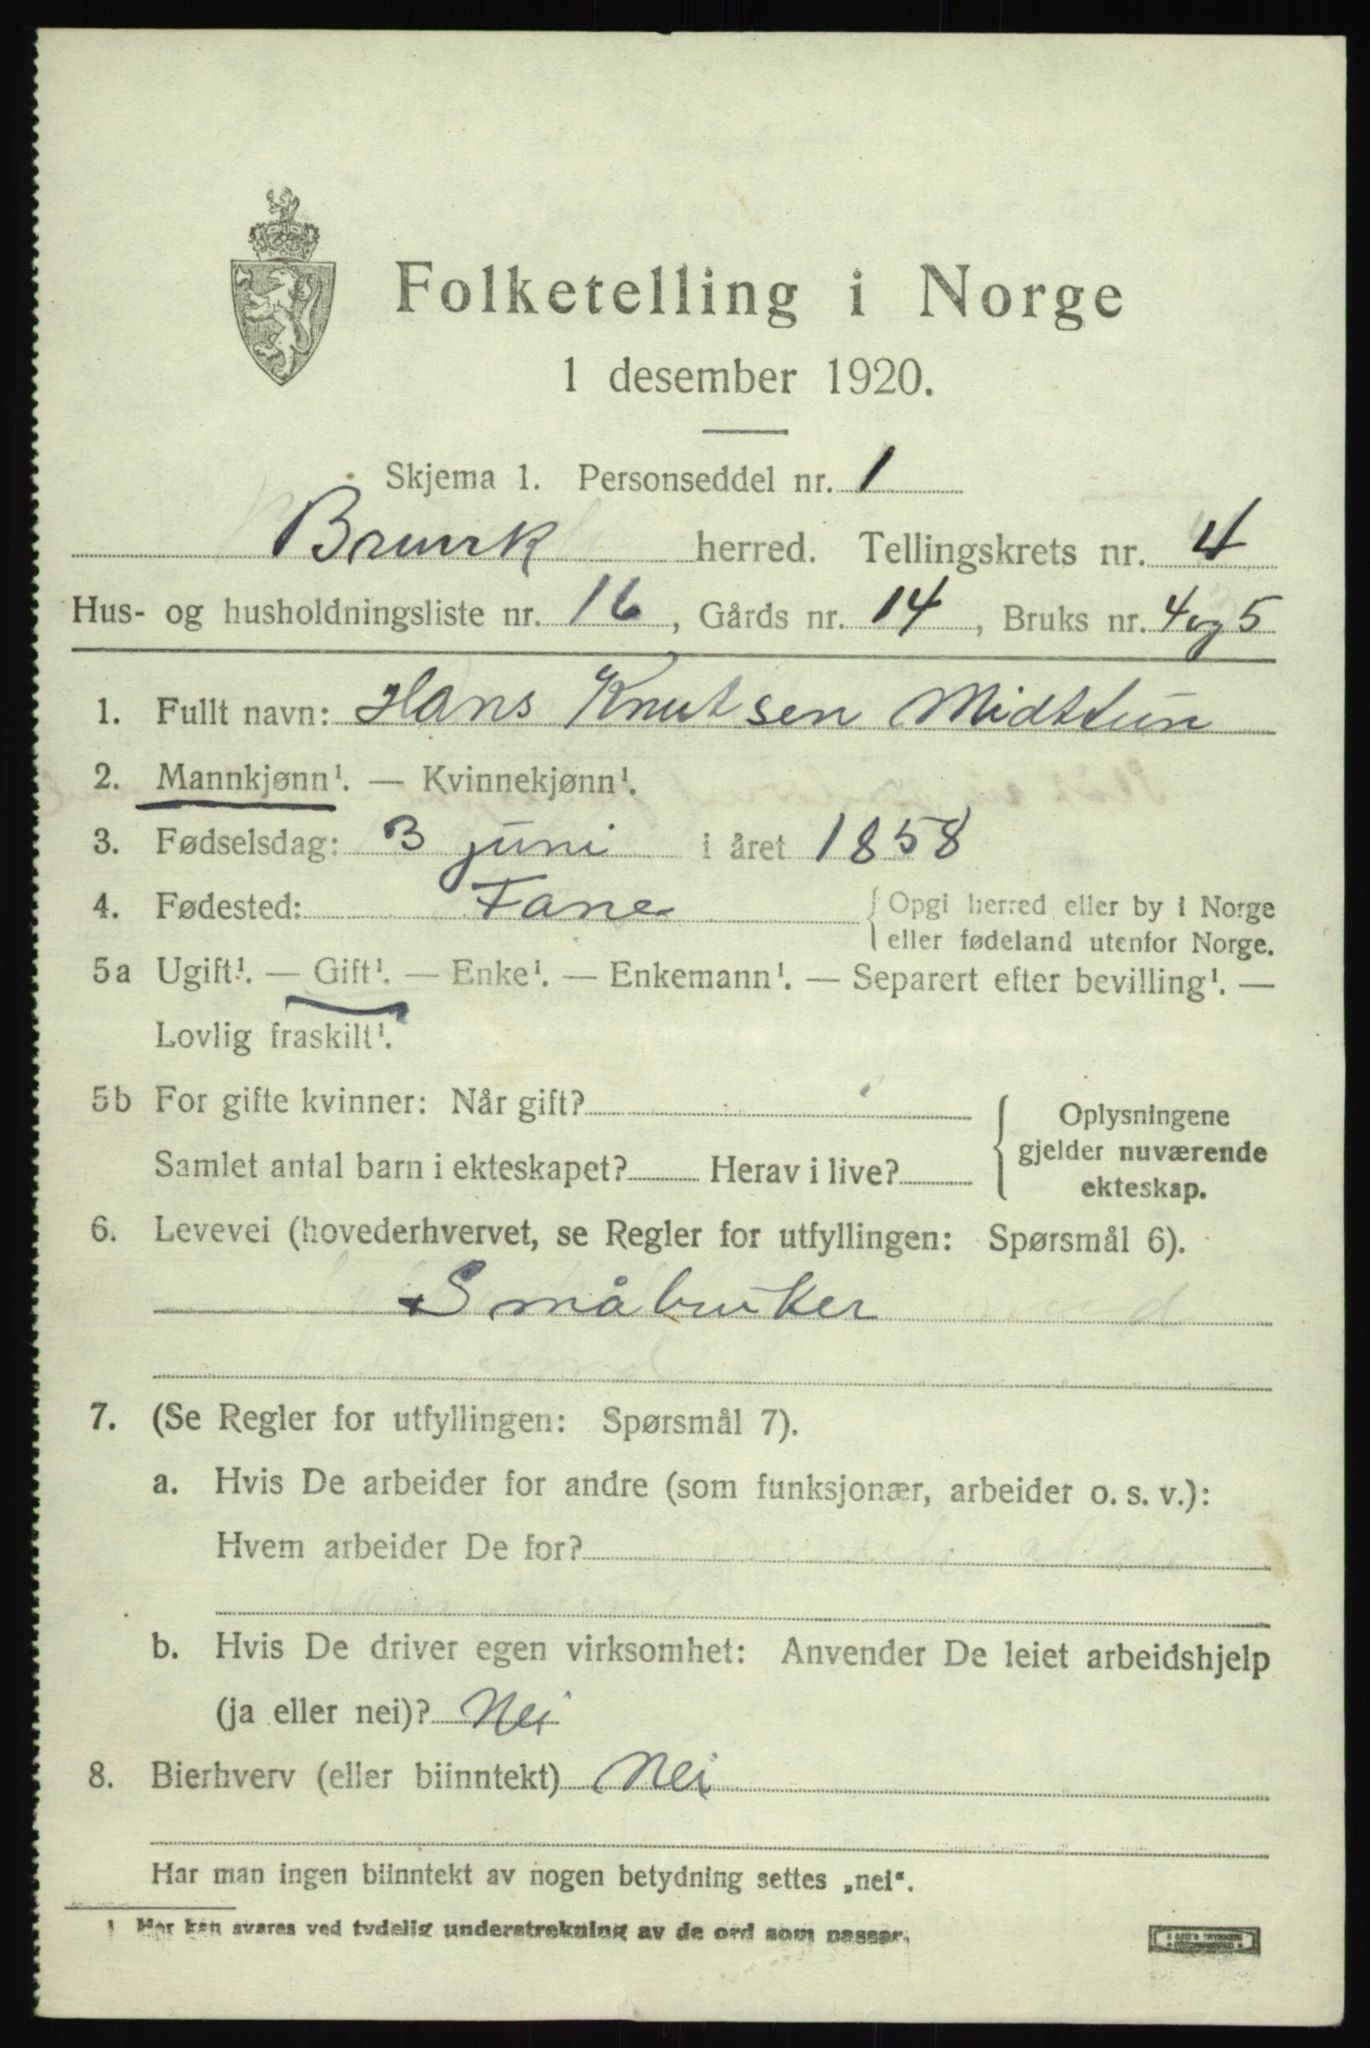 Folketelling i Norge
1 desember 1920.
Skjema 1. Personseddel nr. 1
Bruvik herred. Tellingskrets nr. 4
Hus- og husholdningsliste nr. 16, Gårds nr. 14, Bruks nr. 4 og 5
1. Fullt navn: Hans Knutsen Midttun
2. Mannkjønn¹. — Kvinnekjønn¹.
3. Fødselsdag: 3 juni i året 1858
4. Fødested: Fane { Opgi herred eller by i Norge
eller fødeland utenfor Norge.
5a Ugift¹. — Gift¹. — Enke¹. — Enkemann¹. — Separert efter bevilling¹. —
Lovlig fraskilt¹.
5b For gifte kvinner: Når gift?
Samlet antal barn i ekteskapet? Herav i live?
{ Oplysningene
gjelder nuværende
ekteskap.
6. Levevei (hovederhvervet, se Regler for utfyllingen: Spørsmål 6).
Småbruker
7. (Se Regler for utfyllingen: Spørsmål 7).
a. Hvis De arbeider for andre (som funksjonær, arbeider o. s. v.):
Hvem arbeider De for?
b. Hvis De driver egen virksomhet: Anvender De leiet arbeidshjelp
(ja eller nei)? Nei
8. Bierhverv (eller biinntekt) Nei
Har man ingen biinntekt av nogen betydning settes „nei“.
1 Her kan svares ved tydelig understrekning av de ord som passer.